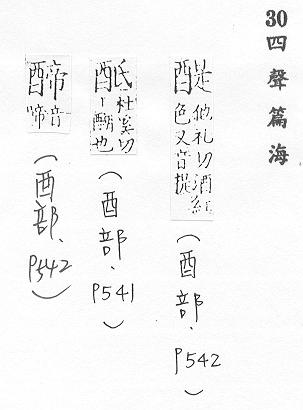 30四聲篇海
醍他礼切酒紅
色又音提
(酉部、
P542
)
䣌杜奚切
丨醐也
(酉部、
P541
)
𨣢音
啼
(酉部、
P542)